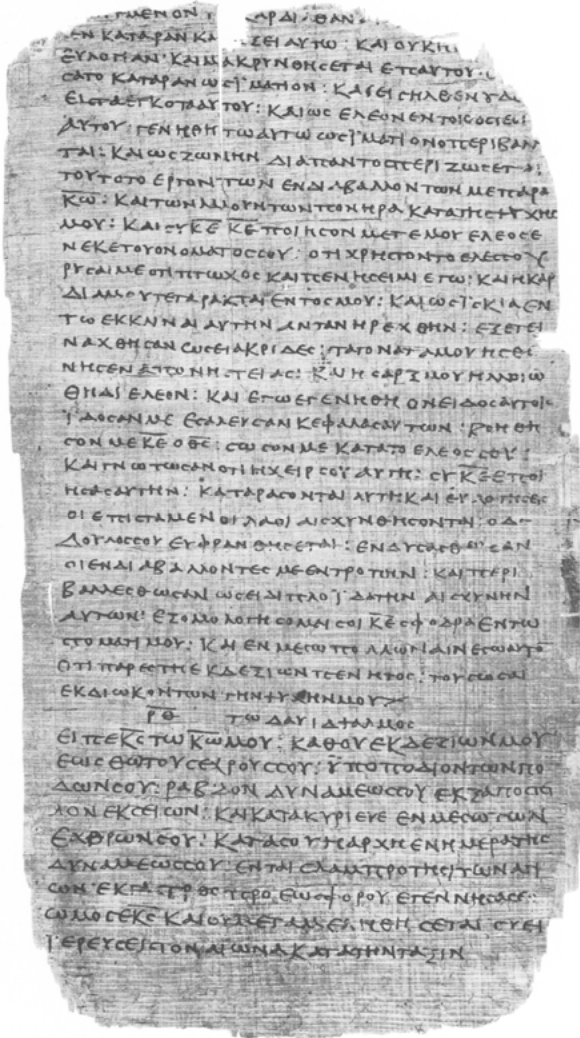 ΓΜΕΝΟΝ ΚΑΡΔΙ ΘΑΝ
ΕΝ ΚΑΤΑΡΑΝ ΚΑ ΞΕΙ ΑΥΤΩ : ΚΑΙ ΟΥΚ Η
ΕΥΛΟΓΙΑΝ ΚΑΙ ΜΑΚΡΥΝΘΗCΕΤΑΙ ΕΠ ΑΥΤΟΥ
CΑΤΟ ΚΑΤΑΡΑΝ ΩC ΪΜΑΤΙΟΝ : ΚΑΙ ΕΙCΗΛΘΕΝ
ΕΙC ΤΑ ΕΓΚΑΤΑ ΑΥΤΟΥ : ΚΑΙ ΩC ΕΛΕΟΝ ΕΝ ΤΟΙC ΟCΤΕΟΙ
ΑΥΤΟΥ : ΓΕΝΗΘΗΤΩ ΑΥΤΩ ΩC ΪΜΑΤΙΟΝ Ο ΠΕΡΙΒΑΛΛ
ΤΑΙ : ΚΑΙ ΩC ΖΩΝΗΝ ΔΙΑ ΠΑΝΤΟC ΠΕΡΙΖΩCΕΤΑΙ
ΤΟΥΤΟ ΤΟ ΕΡΓΟΝ ΤΩΝ ΕΝΔΙΑΒΑΛΛΟΝΤΩΝ ΜΕ ΠΑΡΑ
Κ̅Ω̅ : ΚΑΙ ΤΩΝ ΛΑΛΟΥΝΤΩΝ ΠΟΝΗΡΑ ΚΑΤΑ ΤΗC ΨΥΧΗC
ΜΟΥ : ΚΑΙ CΥ Κ̅Ε̅ Κ̅Ε̅ ΠΟΙΗCΟΝ ΜΕΤ ΕΜΟΥ ΕΛΕΟC Ε
ΝΕΚΕ ΤΟΥ ΟΝΟΜΑΤΟC CΟΥ : ΟΤΙ ΧΡΗCΤΟΝ ΤΟ ΕΛΕΟC CΟΥ
ΡΥCΑΙ ΜΕ ΟΤΙ ΠΤΩΧΟC ΚΑΙ ΠΕΝΗC ΕΙΜΙ ΕΓΩ : ΚΑΙ Η ΚΑΡ
ΔΙΑ ΜΟΥ ΤΕΤΑΡΑΚΤΑΙ ΕΝΤΟC ΜΟΥ : ΚΑΙ ΩC Ϊ CΚΙΑ ΕΝ
ΤΩ ΕΚΚΛΙΝΑΙ ΑΥΤΗΝ ΑΝΤΑΝΗΡΕΧΘΗΝ : ΕΞΕΤΕΙ
ΝΑΧΘΗCΑΝ ΩCΕΙ ΑΚΡΙΔΕC : ΤΑ ΓΟΝΑΤΑ ΜΟΥ ΗCΘΕ
ΝΗCΕΝ ΑΠΟ ΝΗCΤΕΙΑC : Κ Η CΑΡΞ ΜΟΥ ΗΛΛΟΙΩ
ΘΗ ΔΙ ΕΛΕΟΝ : ΚΑΙ ΕΓΩ ΕΓΕΝΗΘΗ ΟΝΕΙΔΟC ΑΥΤΟΙC
ΪΔΟCΑΝ ΜΕ ΕCΑΛΕΥCΑΝ ΚΕΦΑΛΑC ΑΥΤΩΝ : ΒΟΗΘΗ
CΟΝ ΜΕ Κ̅Ε̅ Ο Θ̅C̅ : CΩCΟΝ ΜΕ ΚΑΤΑ ΤΟ ΕΛΕΟC CΟΥ :
ΚΑΙ ΓΝΩΤΩCΑΝ ΟΤΙ Η ΧΕΙΡ CΟΥ ΑΥΤΗ : CΥ Κ̅Ε̅ ΕΠΟΙ
ΗCΑC ΑΥΤΗΝ : ΚΑΤΑΡΑCΟΝΤΑΙ ΑΥΤΗ ΚΑΙ ΕΥΛΟΓΗCΕΙC
ΟΙ ΕΠΙCΤΑΜΕΝΟΙ ΛΑΟΙ ΑΙCΧΥΝΘΗCΟΝΤΑΙ : Ο ΔΕ
ΔΟΥΛΟC CΟΥ ΕΥΦΡΑΝΘΗCΕΤΑΙ : ΕΝΔΥCΑCΘΩCΑΝ
ΟΙ ΕΝΔΙΑΒΑΛΛΟΝΤΕC ΜΕ ΕΝΤΡΟΠΗΝ : ΚΑΙ ΠΕΡΙ
ΒΑΛΛΕCΘΩCΑΝ ΩCΕΙ ΔΙΠΛΟΪΔΑ ΤΗΝ ΑΙCΧΥΝΗΝ
ΑΥΤΩΝ : ΕΞΟΜΟΛΟΓΗCΟΜΑΙ CΟΙ Κ̅Ε̅ CΦΟΔΡΑ ΕΝ ΤΩ
CΤΟΜΑΤΙ ΜΟΥ : ΚΑΙ ΕΝ ΜΕCΩ ΠΟΛΛΩΝ ΑΙΝΕCΩ ΑΥΤΟ̅
ΟΤΙ ΠΑΡΕCΤΗ ΕΚ ΔΕΞΙΩΝ ΠΕΝΗΤΟC : ΤΟΥ CΩCΑΙ
ΕΚ ΔΙΩΚΟΝΤΩΝ ΤΗΝ ΨΥΧΗΝ ΜΟΥ >
Ρ̅Θ̅ ΤΩ ΔΑΥΙΔ ΨΑΛΜΟC
ΕΙΠΕ Κ̅C̅ ΤΩ Κ̅Ω̅ ΜΟΥ : ΚΑΘΟΥ ΕΚ ΔΕΞΙΩΝ ΜΟΥ
ΕΩC ΘΩ ΤΟΥC ΕΧΡΟΥC CΟΥ : ΫΠΟΠΟΔΙΟΝ ΤΩΝ ΠΟ
ΔΩΝ CΟΥ : ΡΑΒΔΟΝ ΔΥΝΑΜΕΩC CΟΥ ΕΞΑΠΟCΤΕ
ΛΟΝ ΕΚ CΕΙΩΝ : ΚΑΙ ΚΑΤΑΚΥΡΙΕΥΕ ΕΝ ΜΕCΩ ΤΩΝ
ΕΧΘΡΩΝ CΟΥ : ΚΑΤΑ CΟΥ Η ΑΡΧΗ ΕΝ ΗΜΕΡΑ ΤΗC
ΔΥΝΑΜΕΩC CΟΥ ΕΝ ΤΑΙC ΛΑΜΠΡΟΤΗCΙ ΤΩΝ ΑΓΙ
ΩΝ ΕΚ ΓΑCΤΡΟC ΠΡΟ ΕΩCΦΟΡΟΥ ΕΓΕΝΝΗCΑ CΕ :
ΩΜΟCΕ Κ̅C̅ ΚΑΙ ΟΥ ΜΕΤΑΜΕΛΗΘΗCΕΤΑΙ CΥ ΕΙ
ΪΕΡΕΥC ΕΙC ΤΟΝ ΑΙΩΝΑ ΚΑΤΑ ΤΗΝ ΤΑΞΙΝ